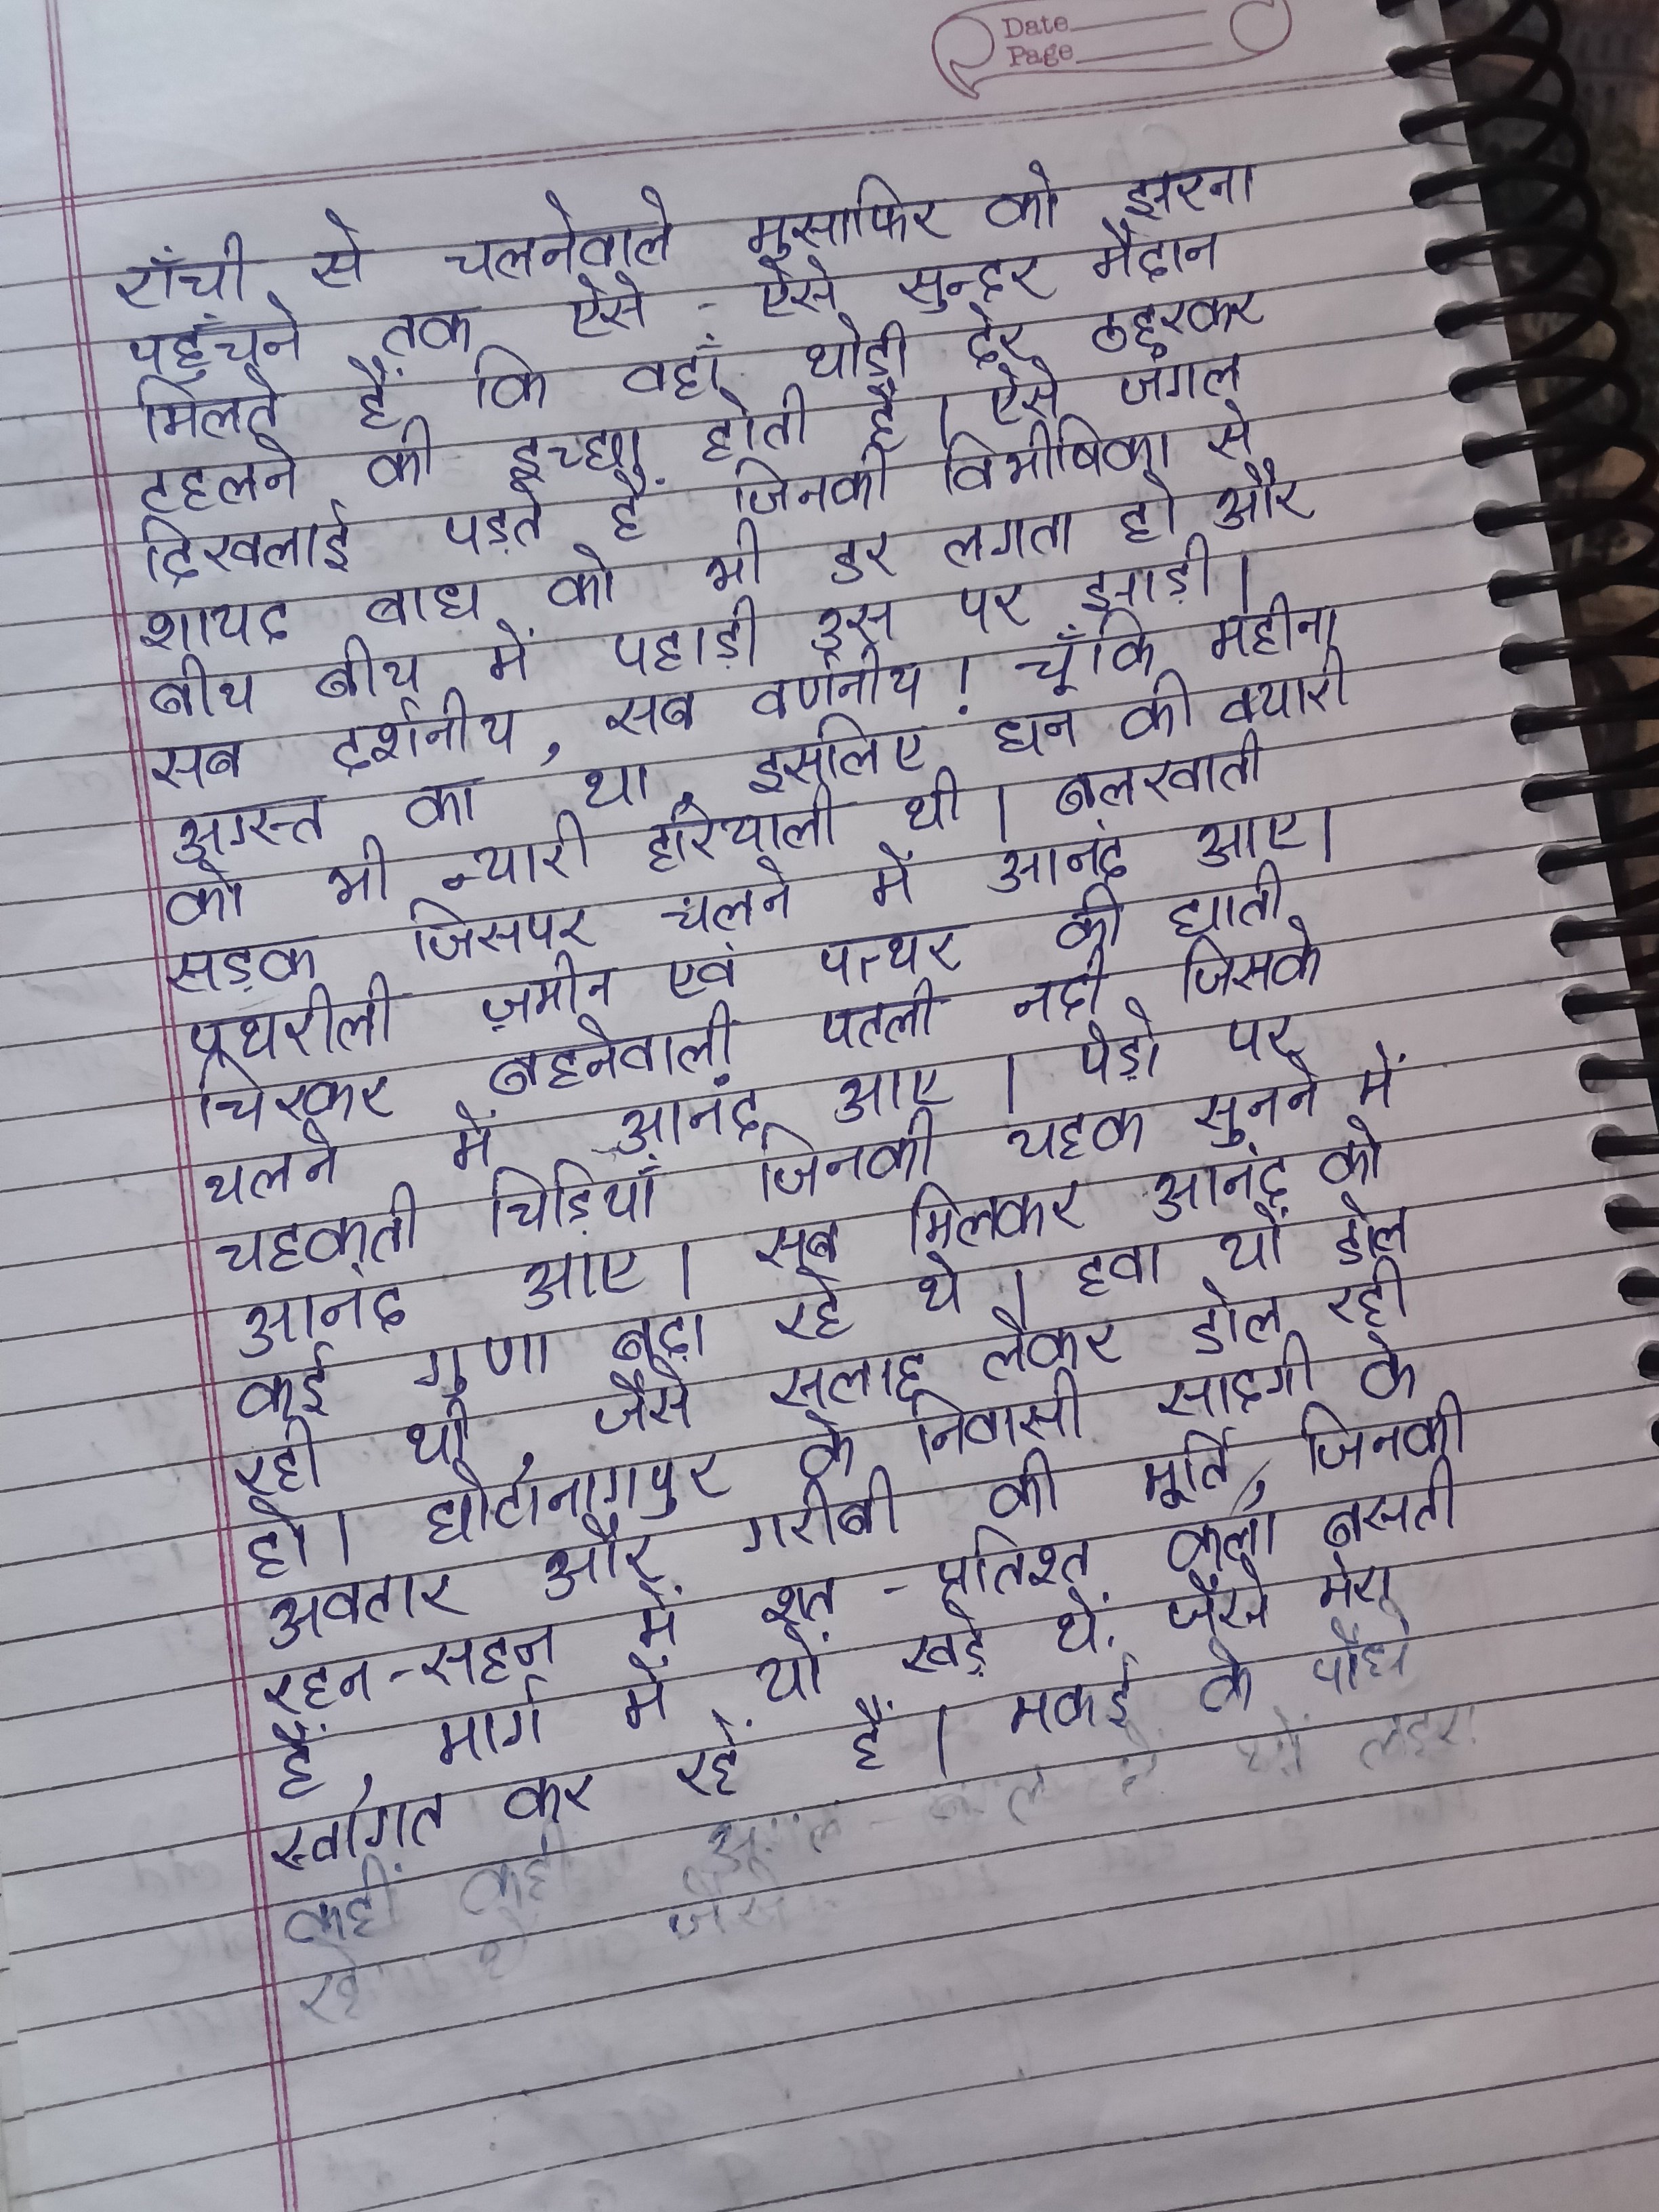 Date
Page
राँची से चलनेवाले मुसाफिर को झरना
पहुँचने तक ऐसे - ऐसे सुन्दर मैदान
मिलते हैं कि वहाँ थोड़ी देर ठहरकर
टहलने की इच्छा होती है। ऐसे जंगल
दिखलाई पड़ते हैं जिनकी विभीषिका से
शायद बाघ को भी डर लगता हो और
बीच बीच में पहाड़ी उस पर झाड़ी।
सब दर्शनीय, सब वर्णनीय! चूँकि महीना
अगस्त का था, इसलिए धन की क्यारी
को भी न्यारी हरियाली थी। बलखाती
सड़क जिसपर चलने में आनंद आए।
पथरीली ज़मीन एवं पत्थर की छाती
चिरकर बहनेवाली पतली नदी जिसके
चलने में आनंद आए। पेड़ो पर
चहकती चिड़ियाँ जिनकी चहक सुनने में
आनंद आए। सब मिलकर आनंद को
कई गुणा बढ़ा रहे थे। हवा यों डोल
रही थी, जैसे सलाह लेकर डोल रही
हो। छोटानागपुर के निवासी सादगी के
अवतार और गरीबी की मूर्ति, जिनकी
रहन-सहन में शत-प्रतिशत कला बसती
हैं, मार्ग में यों खड़े थे, जैसे मेरा
स्वागत कर रहें हैं। मकई के पौधे
कहीं कहीं यों लहरा
रहे थे जैसे